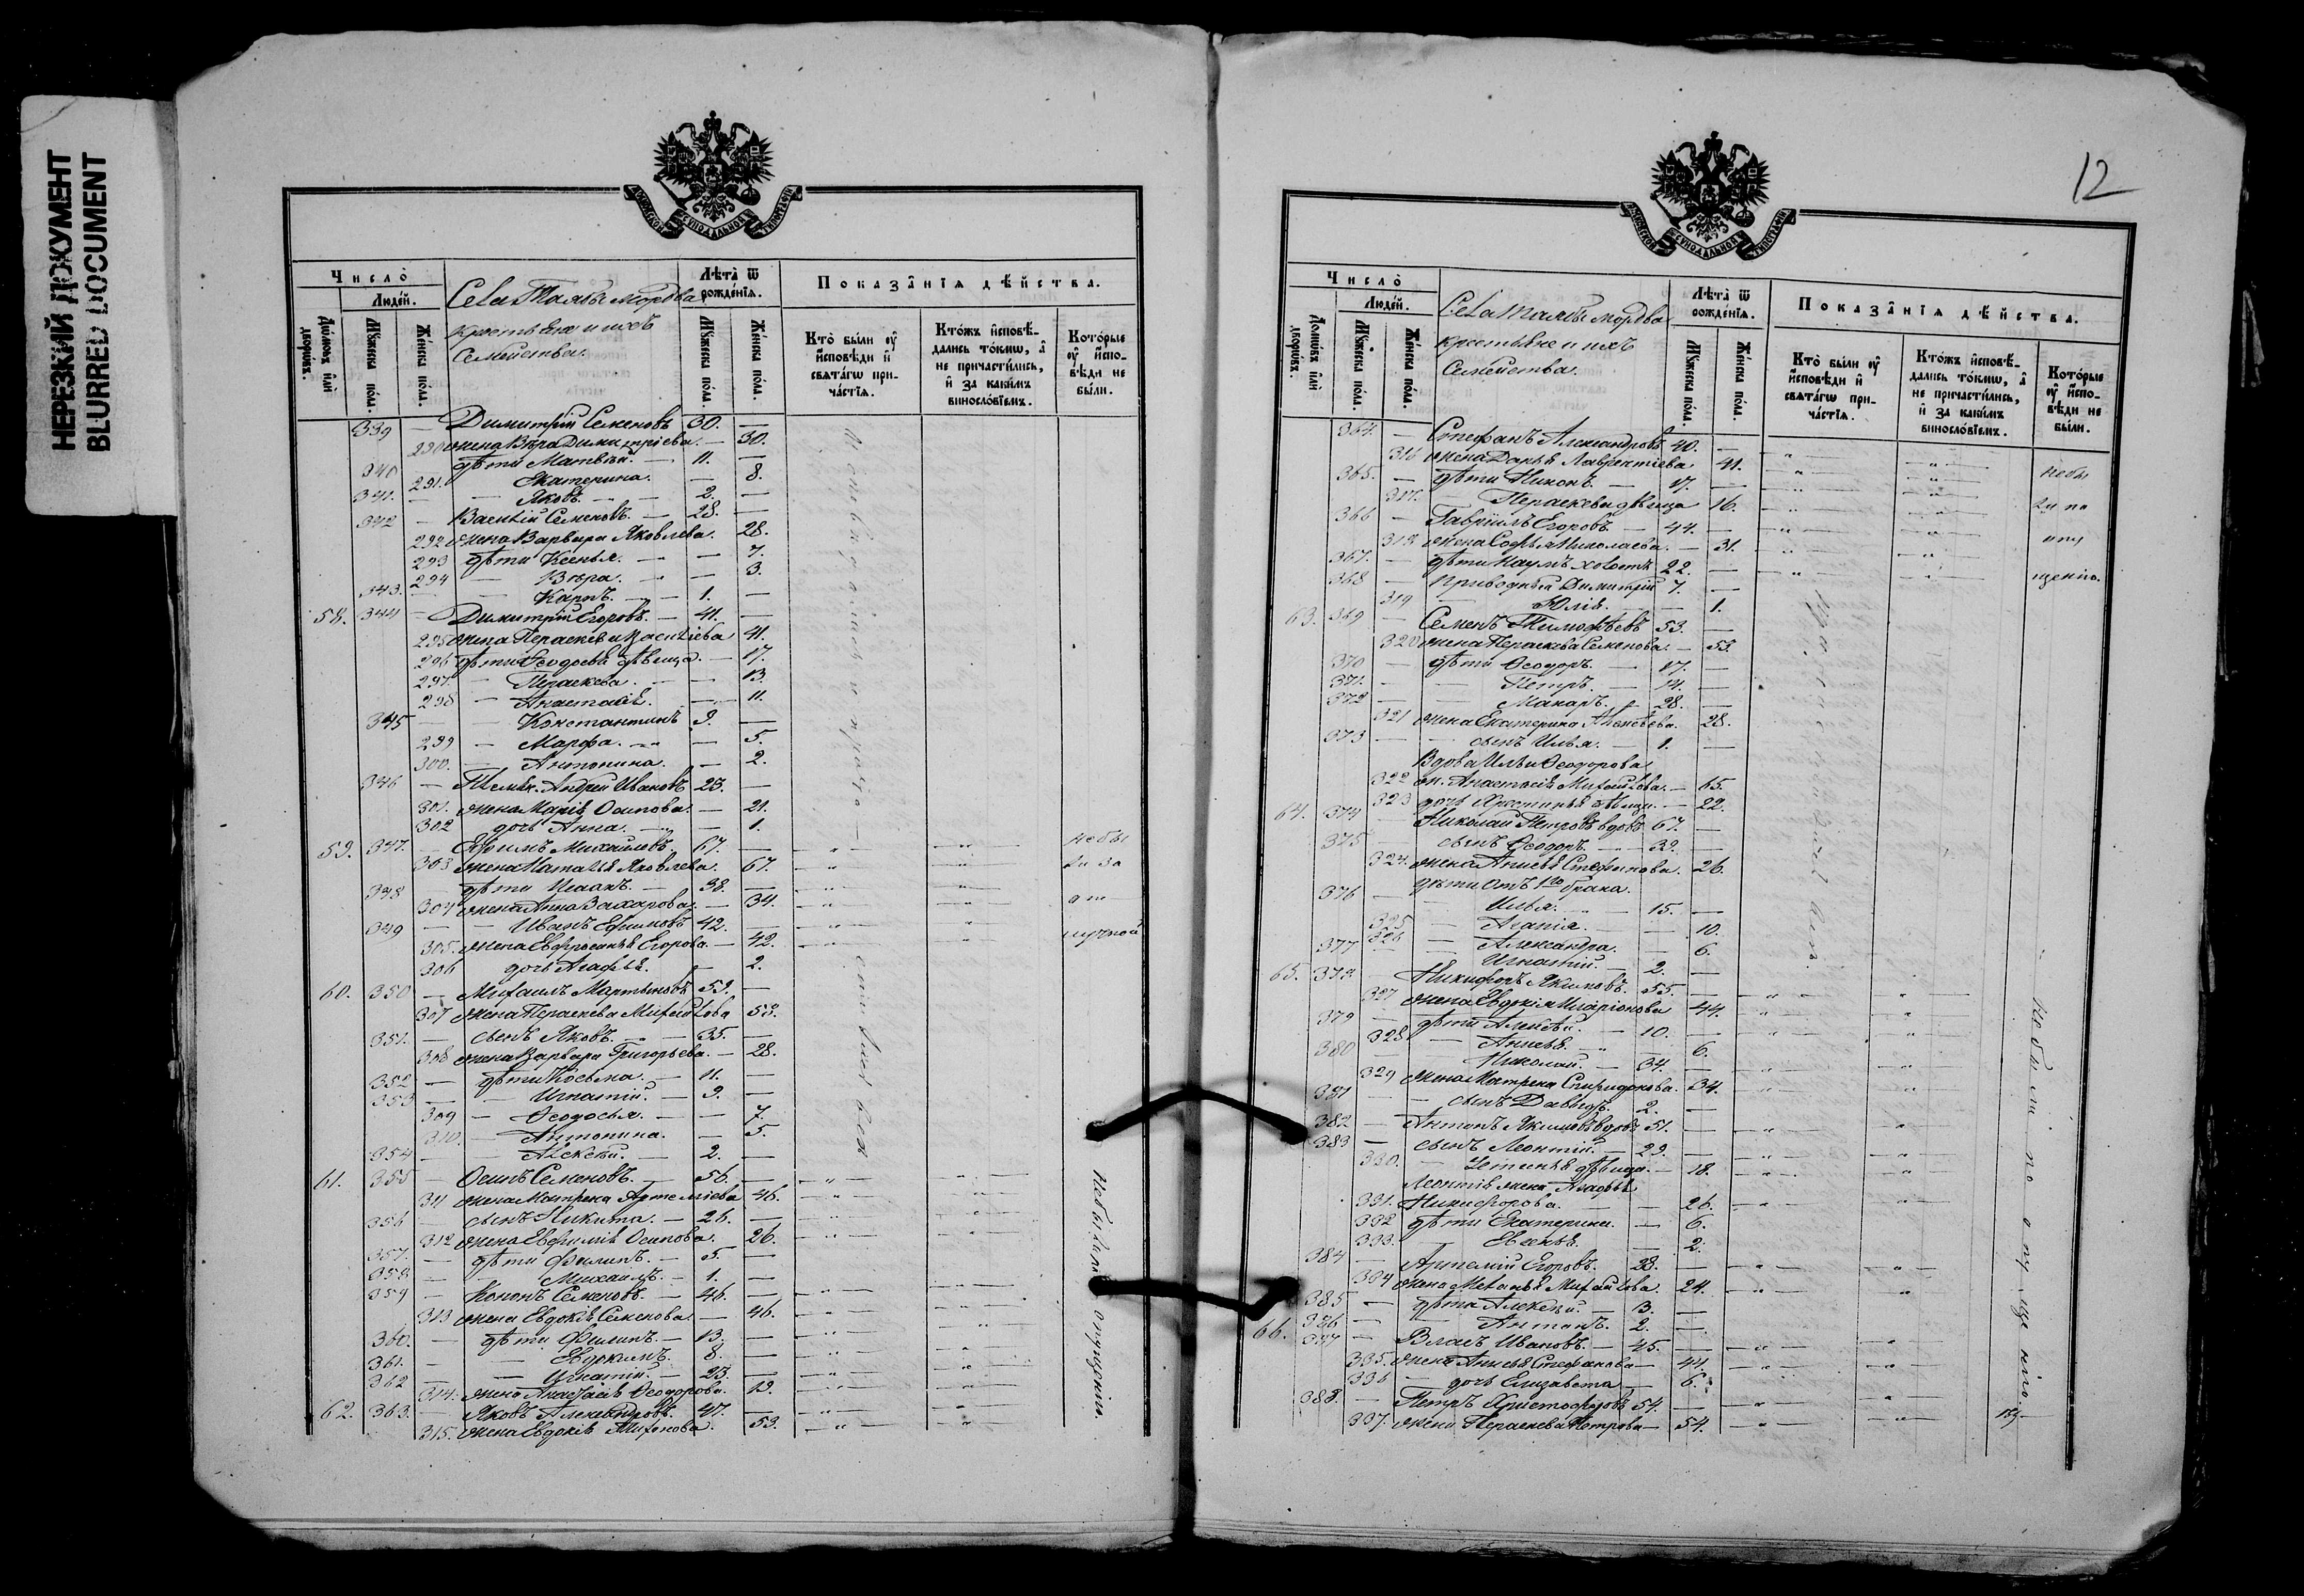 НЕРЕЗКИЙ ДОКУМЕНТ
BLURRED DOCUMENT
МОСКОВСКОЙ СѴНОДАЛЬНОЙ ТИПОГРАФІИ
Число̀
Люде́й.
Домѡ́въ и҆лѝ дворѡ́въ.
Мꙋ́жеска по́ла.
Же́нска по́ла.
Села Талвы мордва
крестьяне и ихъ
Семейства.
Лѣ́та ѿ рожде́нїѧ.
Мꙋ́жеска по́ла.
Же́нска по́ла.
Показа̂нїѧ дѣ́йства.
Кто̀ бы́ли ᲂу҆ и҆́сповѣди и҆ свѧта́гѡ при-
ча́стїѧ.
Кто́жъ и҆сповѣ́-
дались то́кмѡ, а҆
не причасти́лись,
и҆ за каки́мъ
винослѡ́вїемъ.
Кото́рые
ᲂу҆ и҆́спо-
вѣди не
бы́ли.
339 — Димитрій Семеновъ 30. —
290 жена Вѣра Димитріева. — 30.
340 дѣти Матвѣй. — 11. —
291. Екатерина. — 8.
341. — Яковъ. — 2. —
342 — Василій Семеновъ. — 28. —
292 жена Варвара Яковлева. 28.
293 дѣти Ксенья. — — 7.
294 — Вѣра. — — 3.
343. — Карпъ. — 1. —
58. 344 — Димитрій Егоровъ. — 41. —
295 жена Параскева Василіева 41.
296 дѣти Ѳеодосья дѣвица. — 17.
297. — Параскева. — — 13.
298 — Анастасія. — — 11.
345 — — Константинъ 9. —
299 — Марфа. — — 5.
300. — Антонина. — 2.
346 — Андрей Ивановъ 23. —
301. жена Марія Осипова. — 21.
302 дочь Анна. — — 1.
59. 347. — Ефимъ Михайловъ. 67. — небы
303 жена Наталья Яковлева. 67. ли за
348 — дѣти Исаакъ. — 38. —
304 жена Анна Захарова. — 34. от
349 — — Иванъ Ефимовъ 42. —
305. жена Евфросинья Егорова. — 42. лучкой
306 дочь Агафья. — 2.
60. 350 — Михаилъ Мартыновъ 59. —
307 жена Параскева Михайлова 58.
351. — сынъ Яковъ. — 35. —
308 жена Варвара Григорьева. — 28.
352 — дѣти Косьма. — 11. —
353 — — Игнатій. — 9. —
309 — Ѳеодосья. — — 7.
310. — Антонина. — 5.
354 — — Алексѣй. — 2. —
61. 355 — Осипъ Семеновъ. — 56. —
311 жена Матрена Артеміева 46.
356 — сынъ Никита. — 26. —
312 жена Евфимія Осипова. 26.
357. — дѣти Филипъ. — 5. —
358 — — Михаилъ. — 1. —
359 — Кононъ Семеновъ. — 46. —
313 жена Евдокія Семенова. — 46.
360. — дѣти Филипъ. — 13. —
361. — — Евдокимъ. 8. —
362 — — Игнатій. — 23. —
314. жена Анастасія Ѳеодорова. 19.
62. 363. — Яковъ Александровъ. 47. —
315. жена Евдокія 53.
небыли по опущенію.
12
МОСКОВСКОЙ СѴНОДАЛЬНОЙ ТИПОГРАФІИ
Число̀
Люде́й.
Домѡ́въ и҆лѝ дворѡ́въ.
Мꙋ́жеска по́ла.
Же́нска по́ла.
Села Талвы мордва
крестьяне и ихъ
Семейства.
Лѣ́та ѿ рожде́нїѧ.
Мꙋ́жеска по́ла.
Же́нска по́ла.
Показа̂нїѧ дѣ́йства.
Кто̀ бы́ли ᲂу҆ и҆́сповѣди и҆ свѧта́гѡ при-
ча́стїѧ.
Кто́жъ и҆сповѣ́-
дались то́кмѡ, а҆
не причасти́лись,
и҆ за каки́мъ
винослѡ́вїемъ.
Кото́рые
ᲂу҆ и҆́спо-
вѣди не
бы́ли.
364. — Стефанъ Александровъ 40. —
316 жена Дарья Лаврентіева 41. небы
365. — дѣти Никонъ. — 17. —
317. — Параскева дѣвица 16. ли по
366 — Гавріилъ Егоровъ. — 44. —
318 жена Софья Николаева. — 31. опу
367. — дѣти Наумъ холостъ 22. —
368 — Приводный Димитрій 7. — щенію.
319 Юлія. — 1.
63. 369 — Семенъ Тимофѣевъ 53. —
320 жена Параскева Семенова. — 53.
370 — дѣти Ѳеодоръ. — 17. —
371. — — Петръ. — 14. —
372 — — Макаръ. — 28. —
321 жена Екатерина Алексѣева. 28.
373 — — сынъ Илья. — 1. —
Вдова Ильи Ѳеодорова
322 ж. Анастасія Михайлова. — 65.
323 дочь Христинья дѣвица. — 22.
64. 374 — Николай Петровъ вдовъ 67. —
375 — сынъ Ѳеодоръ. — 32. —
324. жена Анисья Стефанова. 26.
дѣти отъ 1го брака.
376 — Илья. — 15. —
325 — Агапія. — — 10.
326 — Александра. — 6.
377 — — Игнатій. — 2. —
65. 378 — Никифоръ Якимовъ. 55. —
327 жена Евдокія Иларіонова 44.
379 — дѣти Алексѣй. — 10. —
328 — Анисья. — 6.
380 — Николай. — 34. —
329 жена Матрена Спиридонова. 34.
381 — — сынъ Давыдъ. 2. —
382 — Антонъ Якимовъ вдовъ 51. —
383 — сынъ Леонтій. — 29. —
330. — Устинья дѣвица. — 18.
Леонтія жена Агафья
331. Никифорова. — — 26.
332 дѣти Екатерина. — 6.
333. — 2.
384 — Артемій Егоровъ. 23. —
334 жена Меланья Михайлова. 24.
385 — дѣти Алексѣй. — 3. —
386 — — Антонъ. 2. —
66. 387 — Власъ Ивановъ. — 45. —
335. жена Анисья Стефанова — 44.
336 — дочь Елизавета — 6.
388. — Петръ Христофоровъ 54. —
337. жена Параскева Петрова — 54.
не были по опущенію.